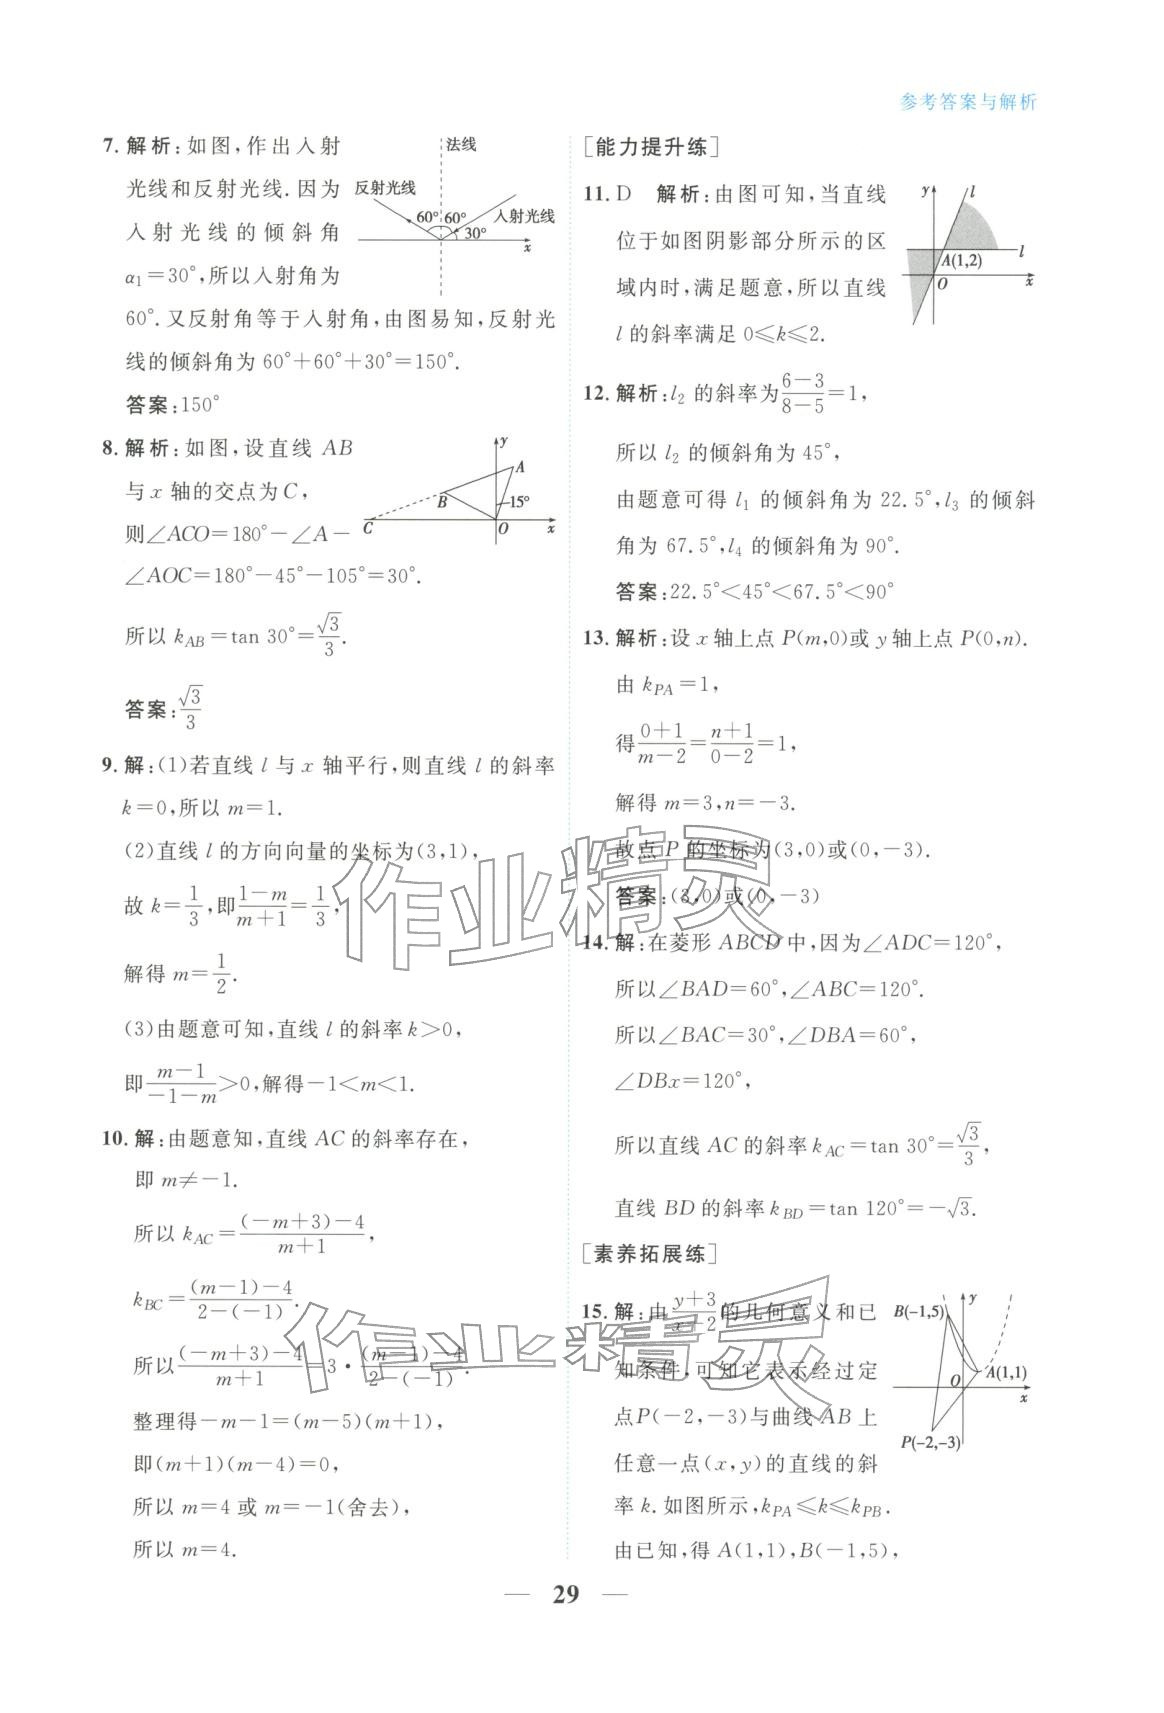 参考答案与解析
7. 解析:如图,作出入射
光线和反射光线.因为
入射光线的倾斜角
α₁=30°,所以入射角为
60°.又反射角等于入射角,由图易知,反射光
线的倾斜角为 60°+60°+30°=150°.
答案:150°
法线
反射光线
60° 60°
入射光线
30°
x
8. 解析:如图,设直线 AB
与 x 轴的交点为 C,
则∠ACO=180°-∠A-
∠AOC=180°-45°-105°=30°.
所以 k_AB=tan 30°=√3/3.
答案:√3/3
y
A
B
15°
C
O
x
9. 解:(1)若直线 l 与 x 轴平行,则直线 l 的斜率
k=0,所以 m=1.
(2)直线 l 的方向向量的坐标为(3,1),
故 k=1/3,即(1-m)/(m+1)=1/3,
解得 m=1/2.
(3)由题意可知,直线 l 的斜率 k>0,
即(m-1)/(-1-m)>0,解得-1<m<1.
10. 解:由题意知,直线 AC 的斜率存在,
即 m≠-1.
所以 k_AC=((-m+3)-4)/(m+1),
k_BC=((m-1)-4)/(2-(-1)).
所以((-m+3)-4)/(m+1)=3·((m-1)-4)/(2-(-1)).
整理得-m-1=(m-5)(m+1),
即(m+1)(m-4)=0,
所以 m=4 或 m=-1(舍去),
所以 m=4.
[能力提升练]
11. D 解析:由图可知,当直线
位于如图阴影部分所示的区
域内时,满足题意,所以直线
l 的斜率满足 0≤k≤2.
y
l
l
A(1,2)
O
x
12. 解析:l₂ 的斜率为(6-3)/(8-5)=1,
所以 l₂ 的倾斜角为 45°,
由题意可得 l₁ 的倾斜角为 22.5°,l₃ 的倾斜
角为 67.5°,l₄ 的倾斜角为 90°.
答案:22.5°<45°<67.5°<90°
13. 解析:设 x 轴上点 P(m,0)或 y 轴上点 P(0,n).
由 k_PA=1,
得(0+1)/(m-2)=(n+1)/(0-2)=1,
解得 m=3,n=-3.
故点 P 的坐标为(3,0)或(0,-3).
答案:(3,0)或(0,-3)
14. 解:在菱形 ABCD 中,因为∠ADC=120°,
所以∠BAD=60°,∠ABC=120°.
所以∠BAC=30°,∠DBA=60°,
∠DBx=120°,
所以直线 AC 的斜率 k_AC=tan 30°=√3/3,
直线 BD 的斜率 k_BD=tan 120°=-√3.
[素养拓展练]
15. 解:由(y+3)/(x+2)的几何意义和已
知条件,可知它表示经过定
点P(-2,-3)与曲线 AB 上
任意一点(x,y)的直线的斜
率 k.如图所示,k_PA≤k≤k_PB.
由已知,得 A(1,1),B(-1,5),
B(-1,5)
y
O
A(1,1)
x
P(-2,-3)
作业精灵
作业精灵
29